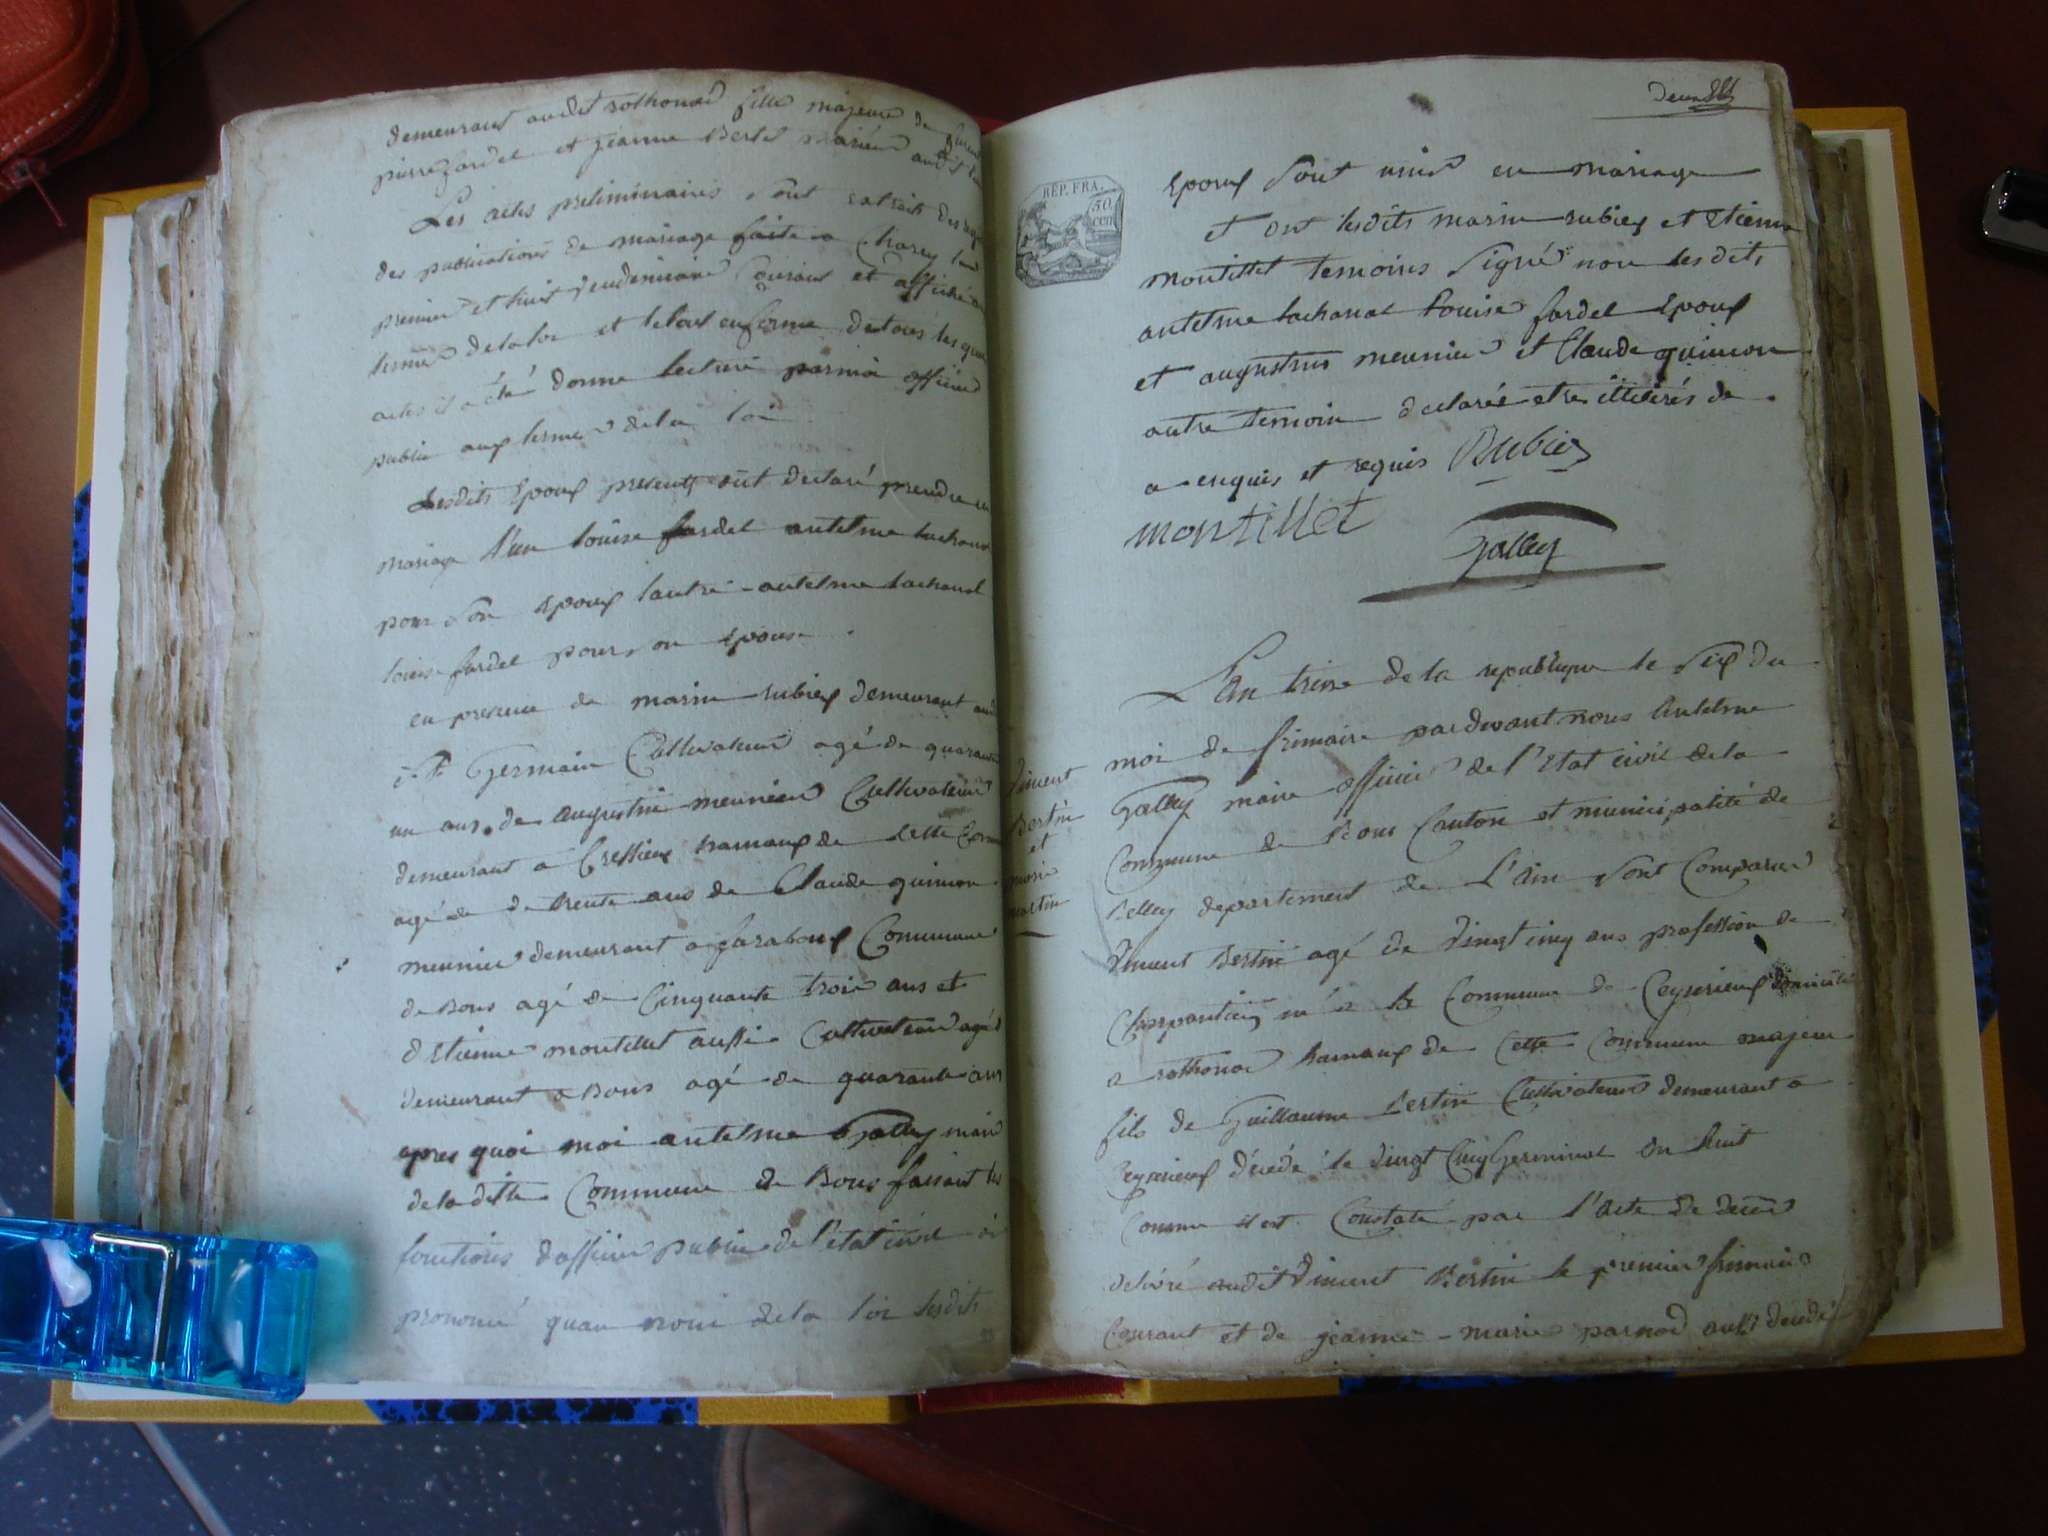 demeurant audit rothonod fille majeure de
pierre fardel et jeanne Bertet mariés audit
Les actes preliminaires sont extraits des
des publications de mariage faite a Charey les
premier et huit vendemiaire Courant et affiché aux
termes de la loi et le tout en forme de tous les quels
actes il a été donné lecture par moi officier
public aux termes de la loi
Lesdits Epoux presents ont declaré prendre en
mariage l'un louise fardel antelme lachanal
pour son Epoux lautre antelme lachanal
louise fardel pour son Epouse
en presence de marin rubier demeurant audit
St Germain Cultivateur agé de quarante
un ans, de augustin meunier Cultivateur
demeurant a Cressieux hamaux de cette Commune
agé de trente ans de Claude quinson
meunier demeurant a Commune
de Bons agé de Cinquante trois ans et
d'Etienne montillet aussi Cultivateur agé
demeurant a Bons agé de quarante ans
apres quoi moi antelme Galley maire
de la ditte Commune de Bons faisant les
fonctions dofficier public de l'etat civil ai
prononcé quau nom de la loi lesdits
REP. FRA.
50 cen
Epoux sont unis en mariage
et ont lesdits marin rubier et Etienne
montillet temoins signé non lesdits
antelme lachanal Louise fardel Epoux
et augustin meunier et Claude quinson
autre temoin declarés etre illitérés de
a enquis et requis Rubier
montillet
Galley
Vincent
Bertin
et
marie
martin
L'an treize de la republique le six du
moi de frimaire pardevant nous Antelme
Galley maire officier de l'Etat civil de la
Commune de Bons Canton et municipalité de
Belley departement de L'ain sont Comparus
Vincent Bertin agé de vingt cinq ans profession de
Charpentier né a la Commune de Ceyzerieux domicilié
a rothonod hamaux de cette Commune majeur
fils de Guillaume Bertin Cultivateur demeurant a
Ceyzerieux décédé le vingt Cinq Germinal an huit
Comme il est Constaté par l'acte de décès
delivré audit Vincent Bertin le premier frimaire
Courant et de jeanne-marie parnod aussi decedé